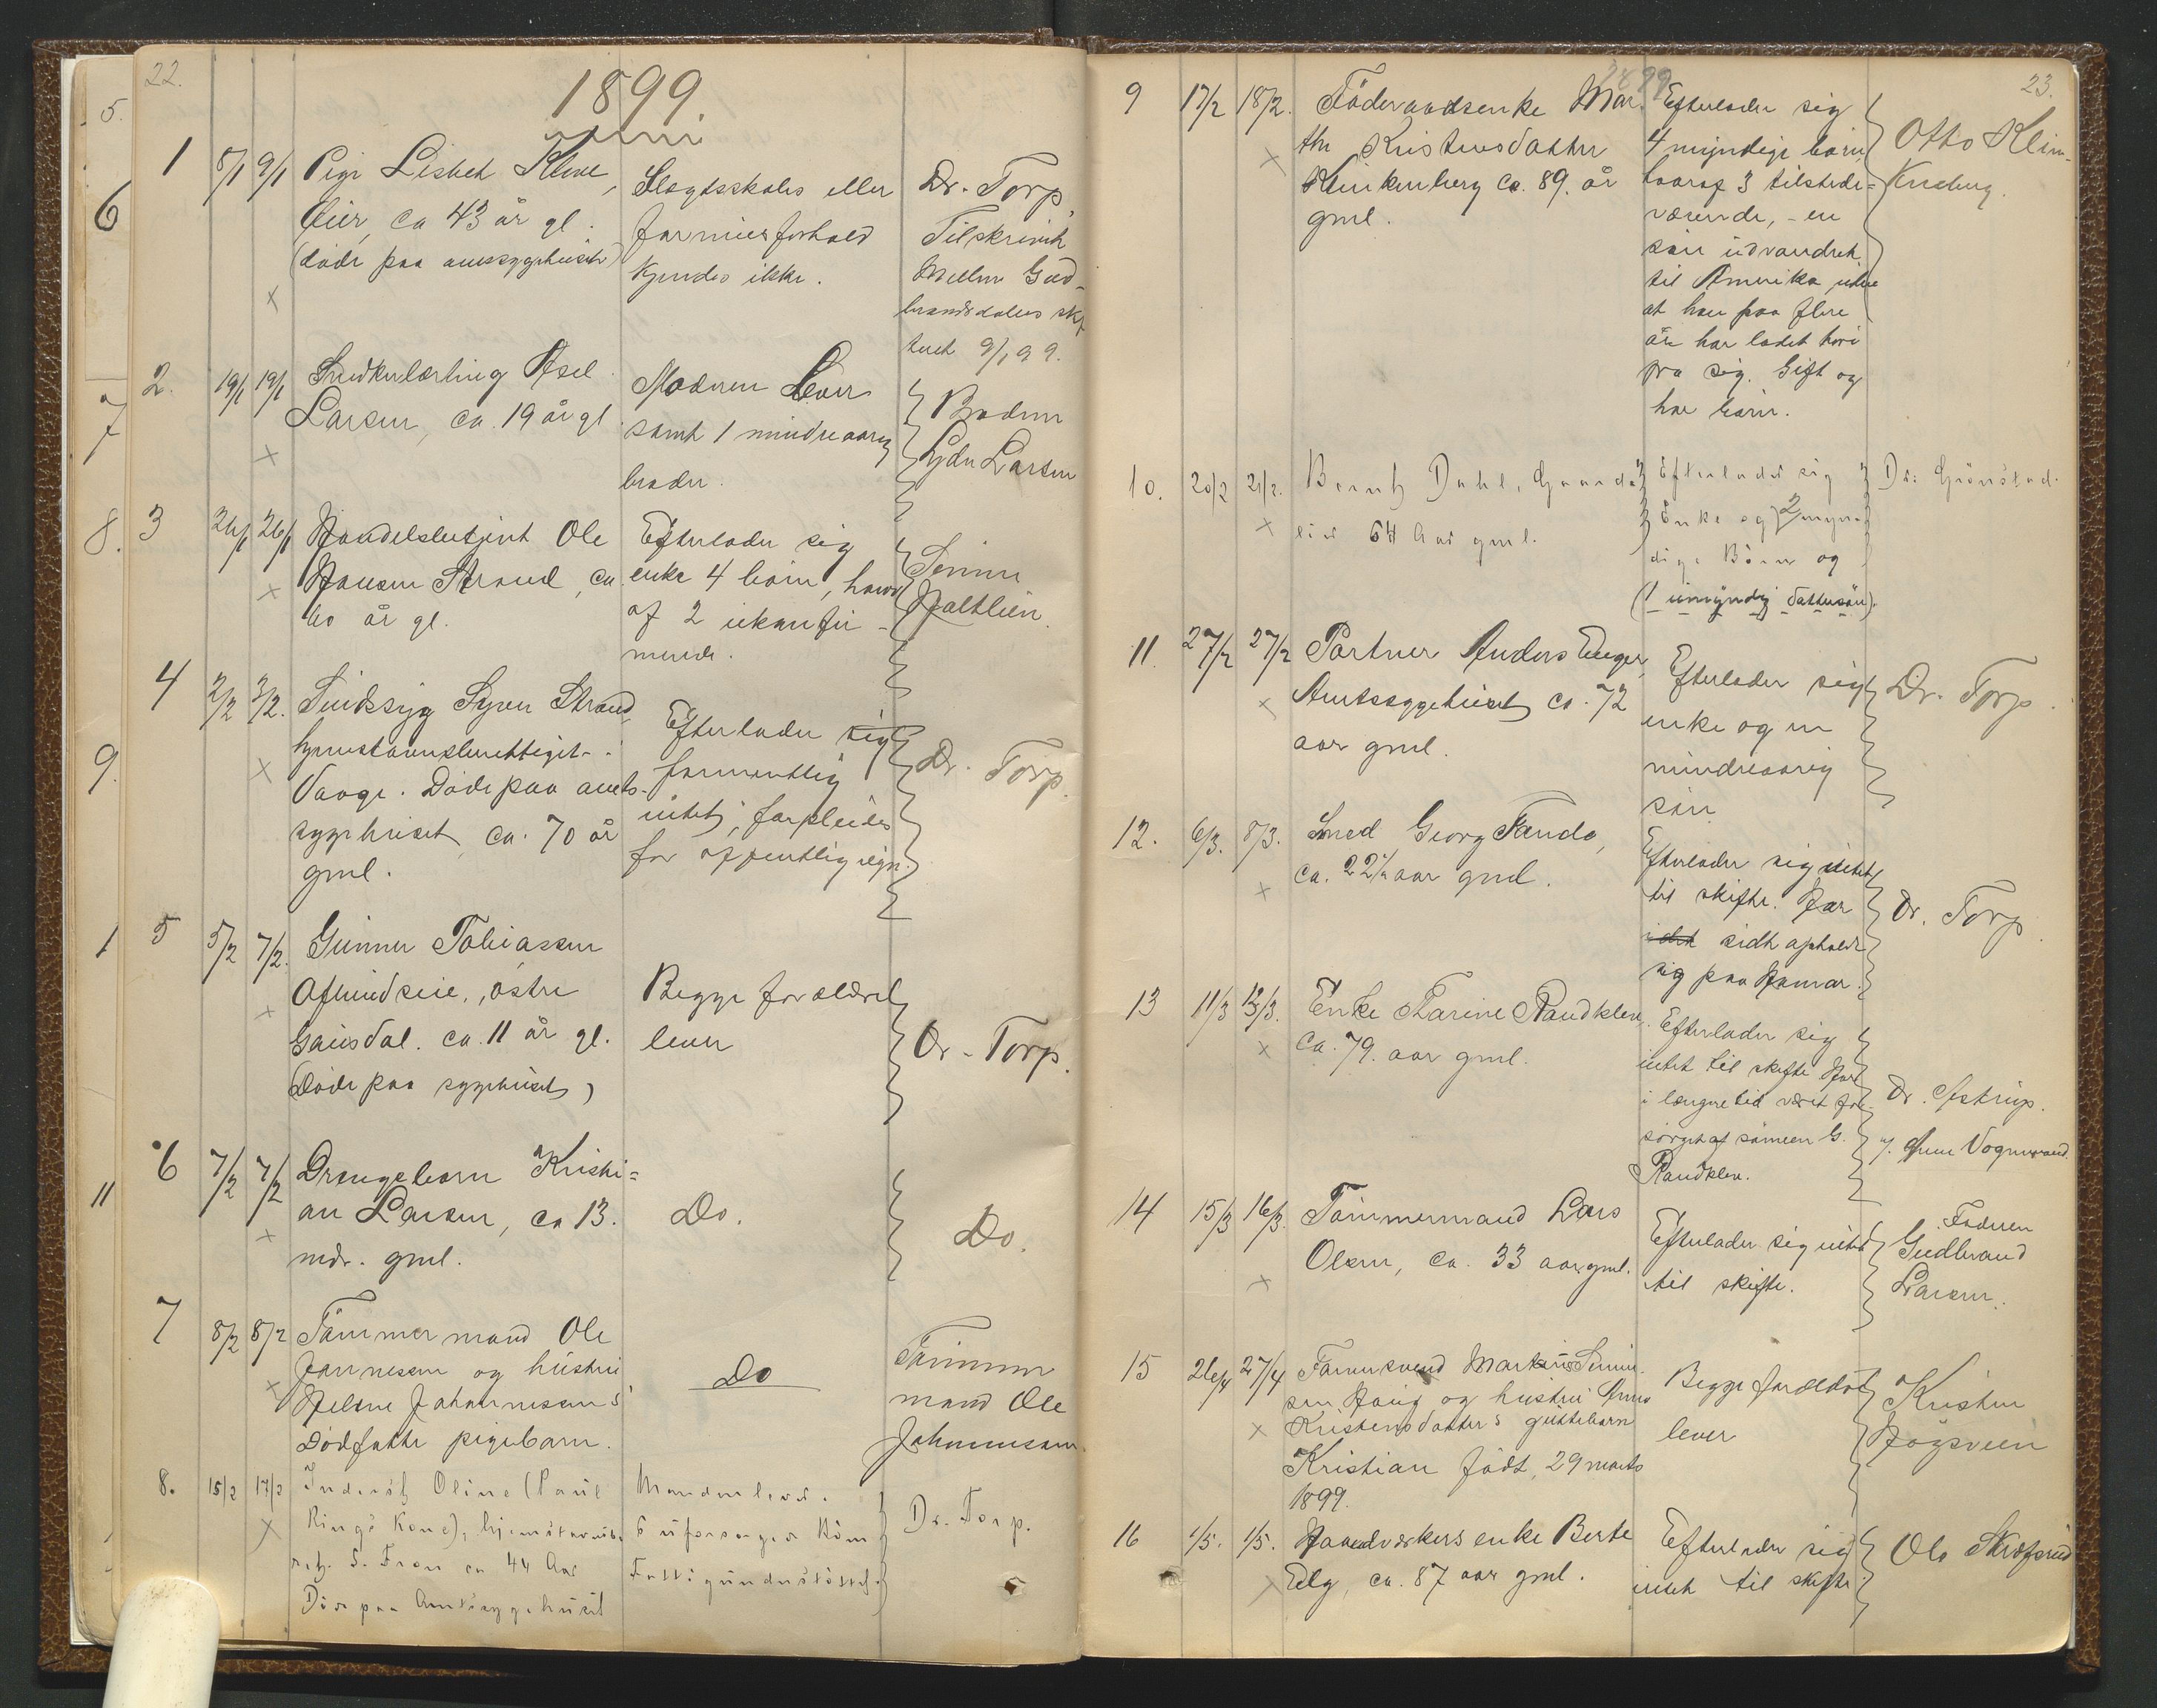 22.
1899.
1 8/1 9/1 Pige Lisbet Kleve,
Øier, ca 43 år gl.
(døde paa amtssygehuset)
Slægtsskabs eller
formuesforhold
kjendes ikke.
Dr. Torp.
Tilskrevet
Mellem Gud-
brandsdalens skf
teret 9/1 99.
2. 19/1 19/1 Snedkerlærling Axel
Larsen, ca. 19 år gl
Moderen lever
samt 1 mindreaarig
broder.
Broderen
Larsen
3 26/1 26/1 Handelsbetjent Ole
Hansen Strand, ca
60 år gl.
Efterlader sig
enke 4 børn, hvor
af 2 ukonfir-
merede.
Haltlien.
4 2/2 3/2. Sindssyg Syver Strand,
hjemstavnsberettiget
Vaage. Døde paa amts-
sygehuset, ca. 70 år
gml.
Efterlader sig
formentlig
intet; forpleides
for offentlig regn.
Dr. Torp.
5 5/2 7/2. Gunner Tobiassen
østre
Gausdal. ca. 11 år gl.
(Døde paa sygehuset)
Begge forældre
lever
Dr. Torp.
6 7/2 7/2 Drengebarn Kristi=
an Larsen, ca 13.
mdr. gml.
Do.
Do.
7 8/2 8/2 Tømmermand Ole
Johannesen og hustru
Helene Johannesens
Dødfødte pigebarn.
Do
Tømmer
mand Ole
Johannesen.
8. 15/2 17/2 Inderst Oline (Paul
Rings Kone), hjemstavnsbe
ret. S. Fron ca 44 Aar
Døde paa Amtssygehuset
Manden lever.
6 uforsørgede Børn
Fattigunderstøttet.
Dr. Torp.
23.
1899
9 17/2 18/2. Föderaadsenke Mar-
the Kristensdatter
Klinkenberg ca. 89. år
gml.
Efterlader sig
4 myndige børn,
hvoraf 3 tilstede=
værende, - en
søn udvandret
til Amerika uden
at han paa flere
år har ladet høre
fra sig. Gift og
har børn.
Otto Klin-
kenberg.
10. 20/2 21/2. Bernt Dahl, Gaard
eier 64 Aar gml.
Efterlader sig
Enke og 2 myn-
dige Børn og
(1 umyndig dattersøn).
Dr. Grønstad.
11. 27/2 27/2 Portner Anders Enger,
Amtssygehuset ca. 72
aar gml.
Efterlader sig
enke og en
mindreaarig
søn
Dr. Torp.
12. 6/3. 8/3. Smed Georg Fando,
ca. 22½ aar gml.
Efterlader sig intet
til skifte. Har
sidst opholdt
sig paa Hamar.
Dr. Torp.
13 11/3 13/3. Enke Karine Randklev,
ca. 79. aar gml.
Efterlader sig
intet til skifte Har
i længere tid været for-
sørget af sønnen G.
Randklev.
Dr. Astrup.
14 15/3 16/3. Tømmermand Lars
Olsen, ca. 33 aar gml.
Efterlader sig intet
til skifte.
Faderen
Gudbrand
Larsen.
15 26/4 27/4
og hustru Anne
Kristensdatters guttebarn
Kristian født, 29 marts
1899.
Begge forældre
lever
Kristen
16 1/5. 1/5. Haandverkers enke Berte
Elg, ca. 87 aar gml.
Efterlader sig
intet til skifte
Ole Skrefsrud
5.
6
7
8.
9.
1
11